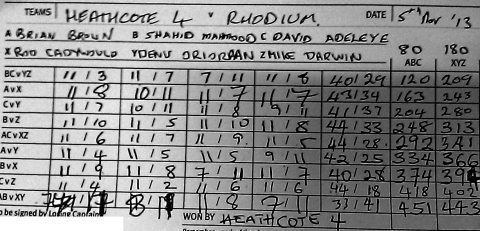 TEAMS HEATHCOTE 4 v RHODIUM. DATE 5th Nov '13
A BRIAN BROWN B SHAHID MAHMOOD C DAVID ADELEYE
X ROD Y DENIS ORIORDAN Z MIKE DARWIN 80 180
ABC XYZ
BCvYZ 11/3 11/7 7/11 11/8 40/29 120 209
AvX 11/8 10/11 11/7 11/7 43/34 163 243
CvY 11/7 10/11 11/8 9/11 41/37 204 280
BvZ 11/10 11/5 11/10 11/8 44/33 248 313
ACvXZ 11/6 11/7 11/9 11/5 44/28 292 341
AvY 11/4 11/5 11/5 9/11 42/25 334 366
BvX 11/9 11/8 7/11 11/7 40/28 374 394
CvZ 11/4 11/2 11/6 11/6 44/18 418 402
ABvXY 11/8 7/11 33/41 451 443
o be signed by Losing Captain
WON BY HEATHCOTE 4